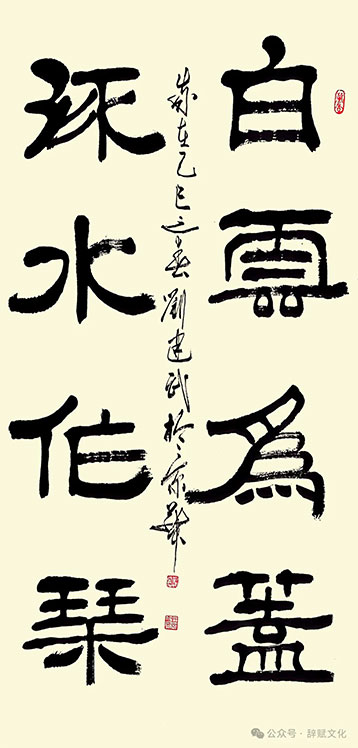 白雲爲蓋
流水作琴
歲在乙巳之春劉建武於京華
公众号·辞赋文化